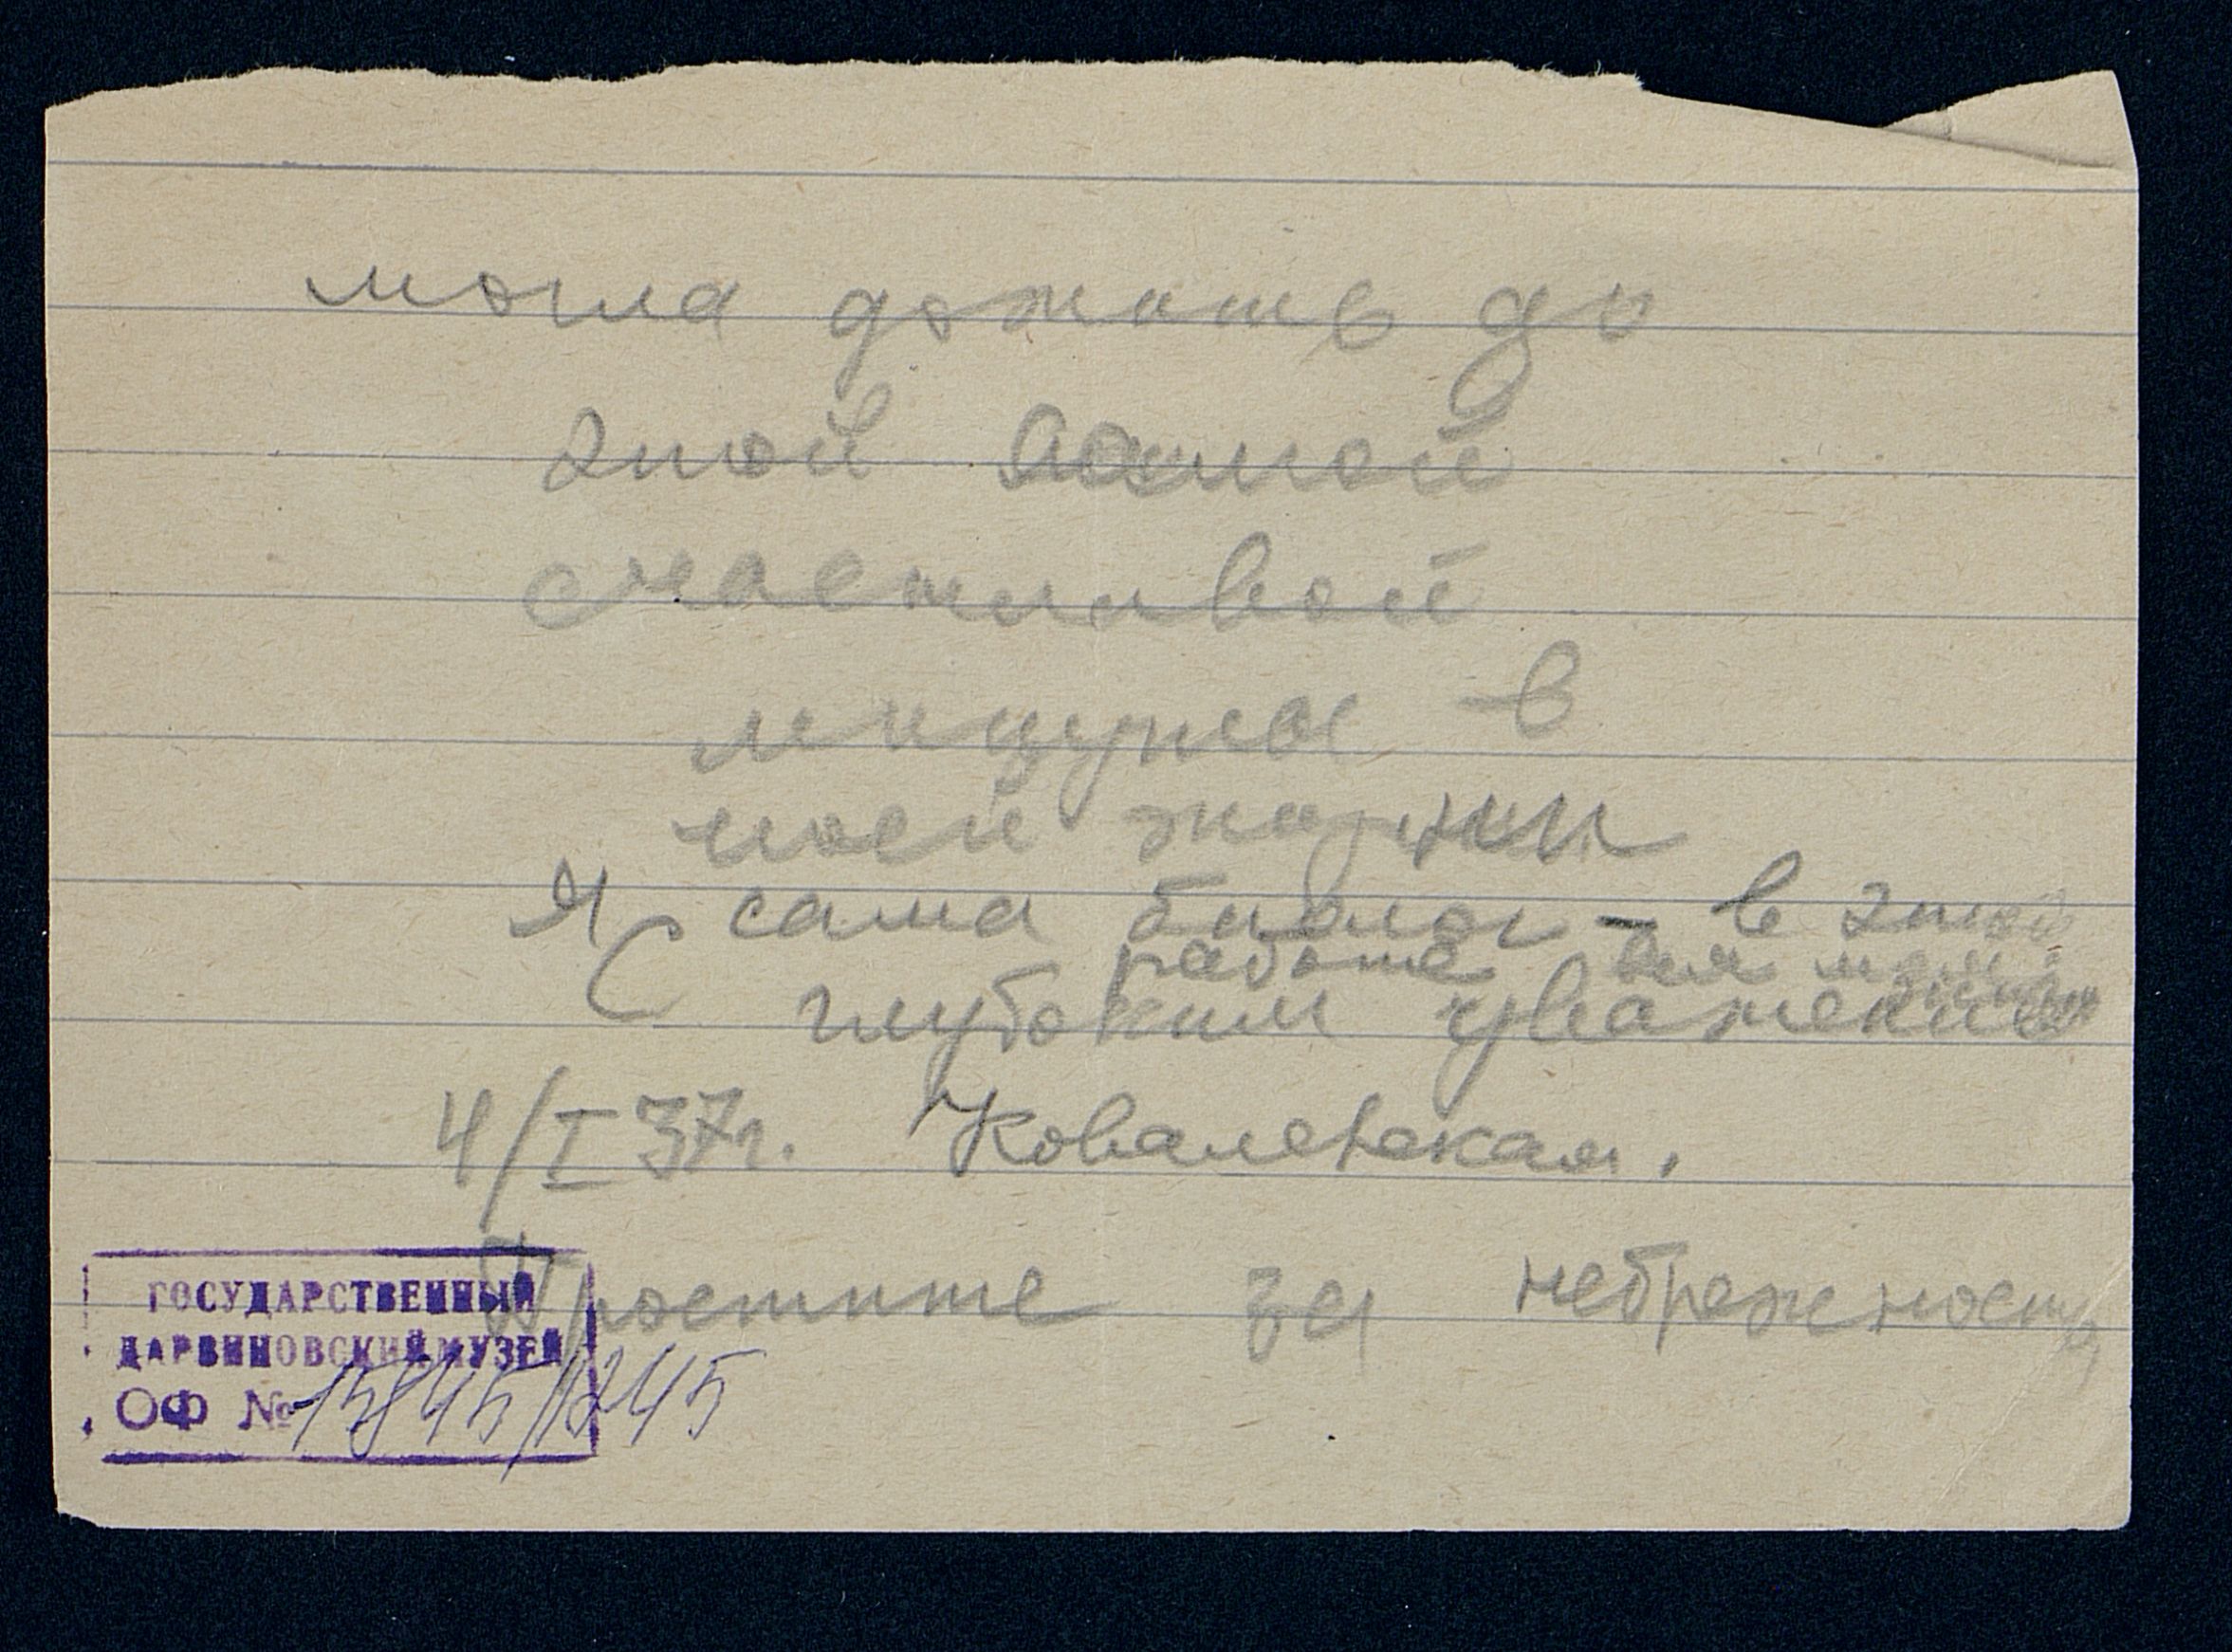 могла дожить до
этой самой
счастливой
минуты в
моей жизни
Я сама биолог – в этой
работе вся моя жизнь
С глубоким уважением
4/I 37г. Ковалевская.
Простите за небрежность
ГОСУДАРСТВЕННЫЙ
ДАРВИНОВСКИЙ МУЗЕЙ
ОФ № 15845/1245